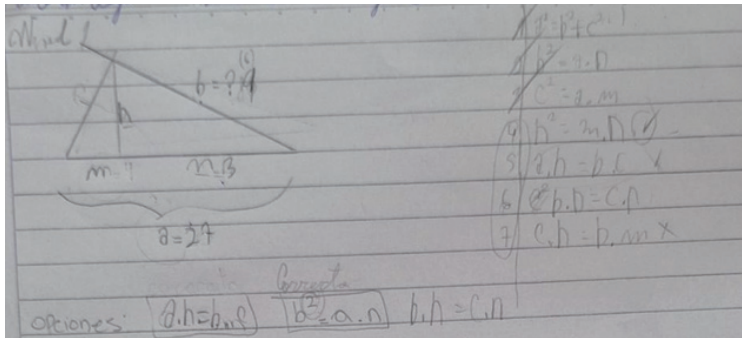 Nivel 1
c
h
b = ?
m = ?
n = 3
a = 27
1 a² = b² + c²
2 b² = a.n
3 c² = a.m
4 h² = m.n
5 a.h = b.c
6 b.h = c.n
7 c.h = b.m x
Correcta
opciones: a.h = b.c b² = a.n b.h = c.n